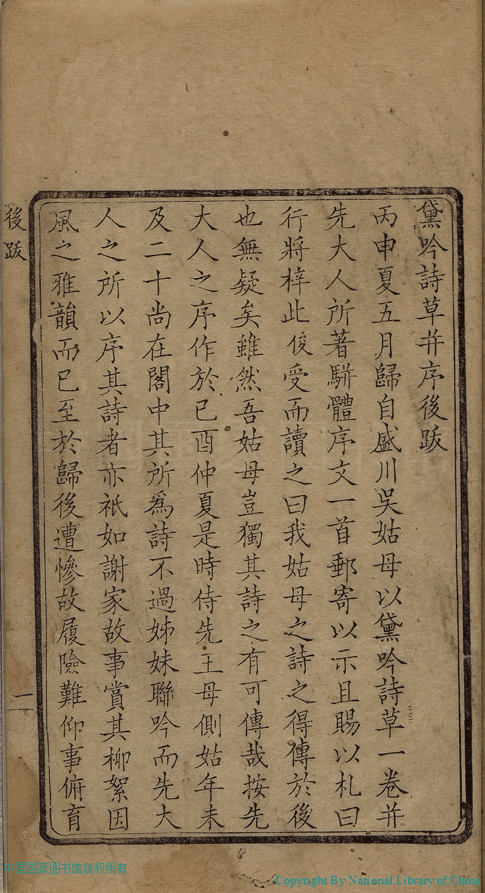 黛吟詩草并序後跋
丙申夏五月歸自盛川吳姑母以黛吟詩草一卷并
先大人所著駢體序文一首郵寄以示且賜以札曰
行將梓此俊受而讀之曰我姑母之詩之得傳於後
也無疑矣雖然吾姑母豈獨其詩之有可傳哉按先
大人之序作於己酉仲夏是時侍先王母側姑年未
及二十尚在閣中其所為詩不過姊妹聯吟而先大
人之所以序其詩者亦祇如謝家故事賞其柳絮因
風之雅韻而已至於歸後遭慘故履險難仰事俯育
後跋
一
Copyright By National Library of China